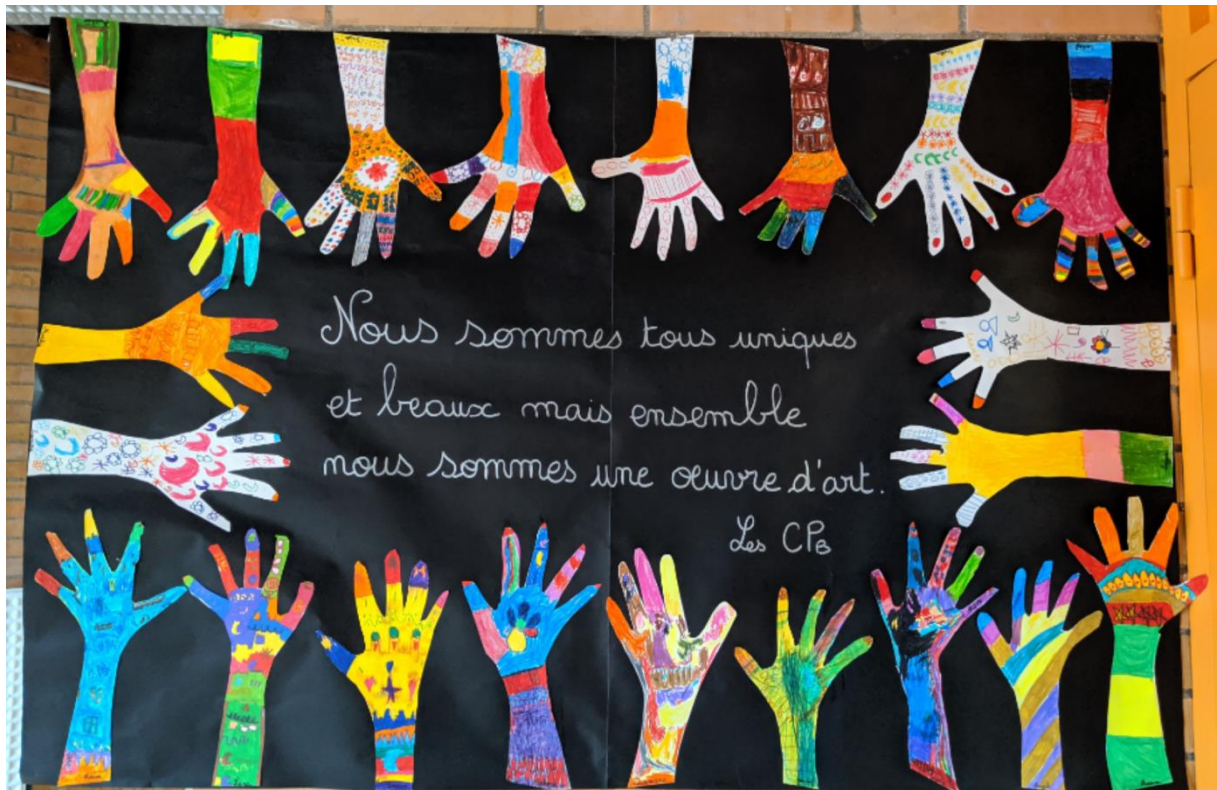 Nous sommes tous uniques
et beaux mais ensemble
nous sommes une œuvre d'art.
Les CPB